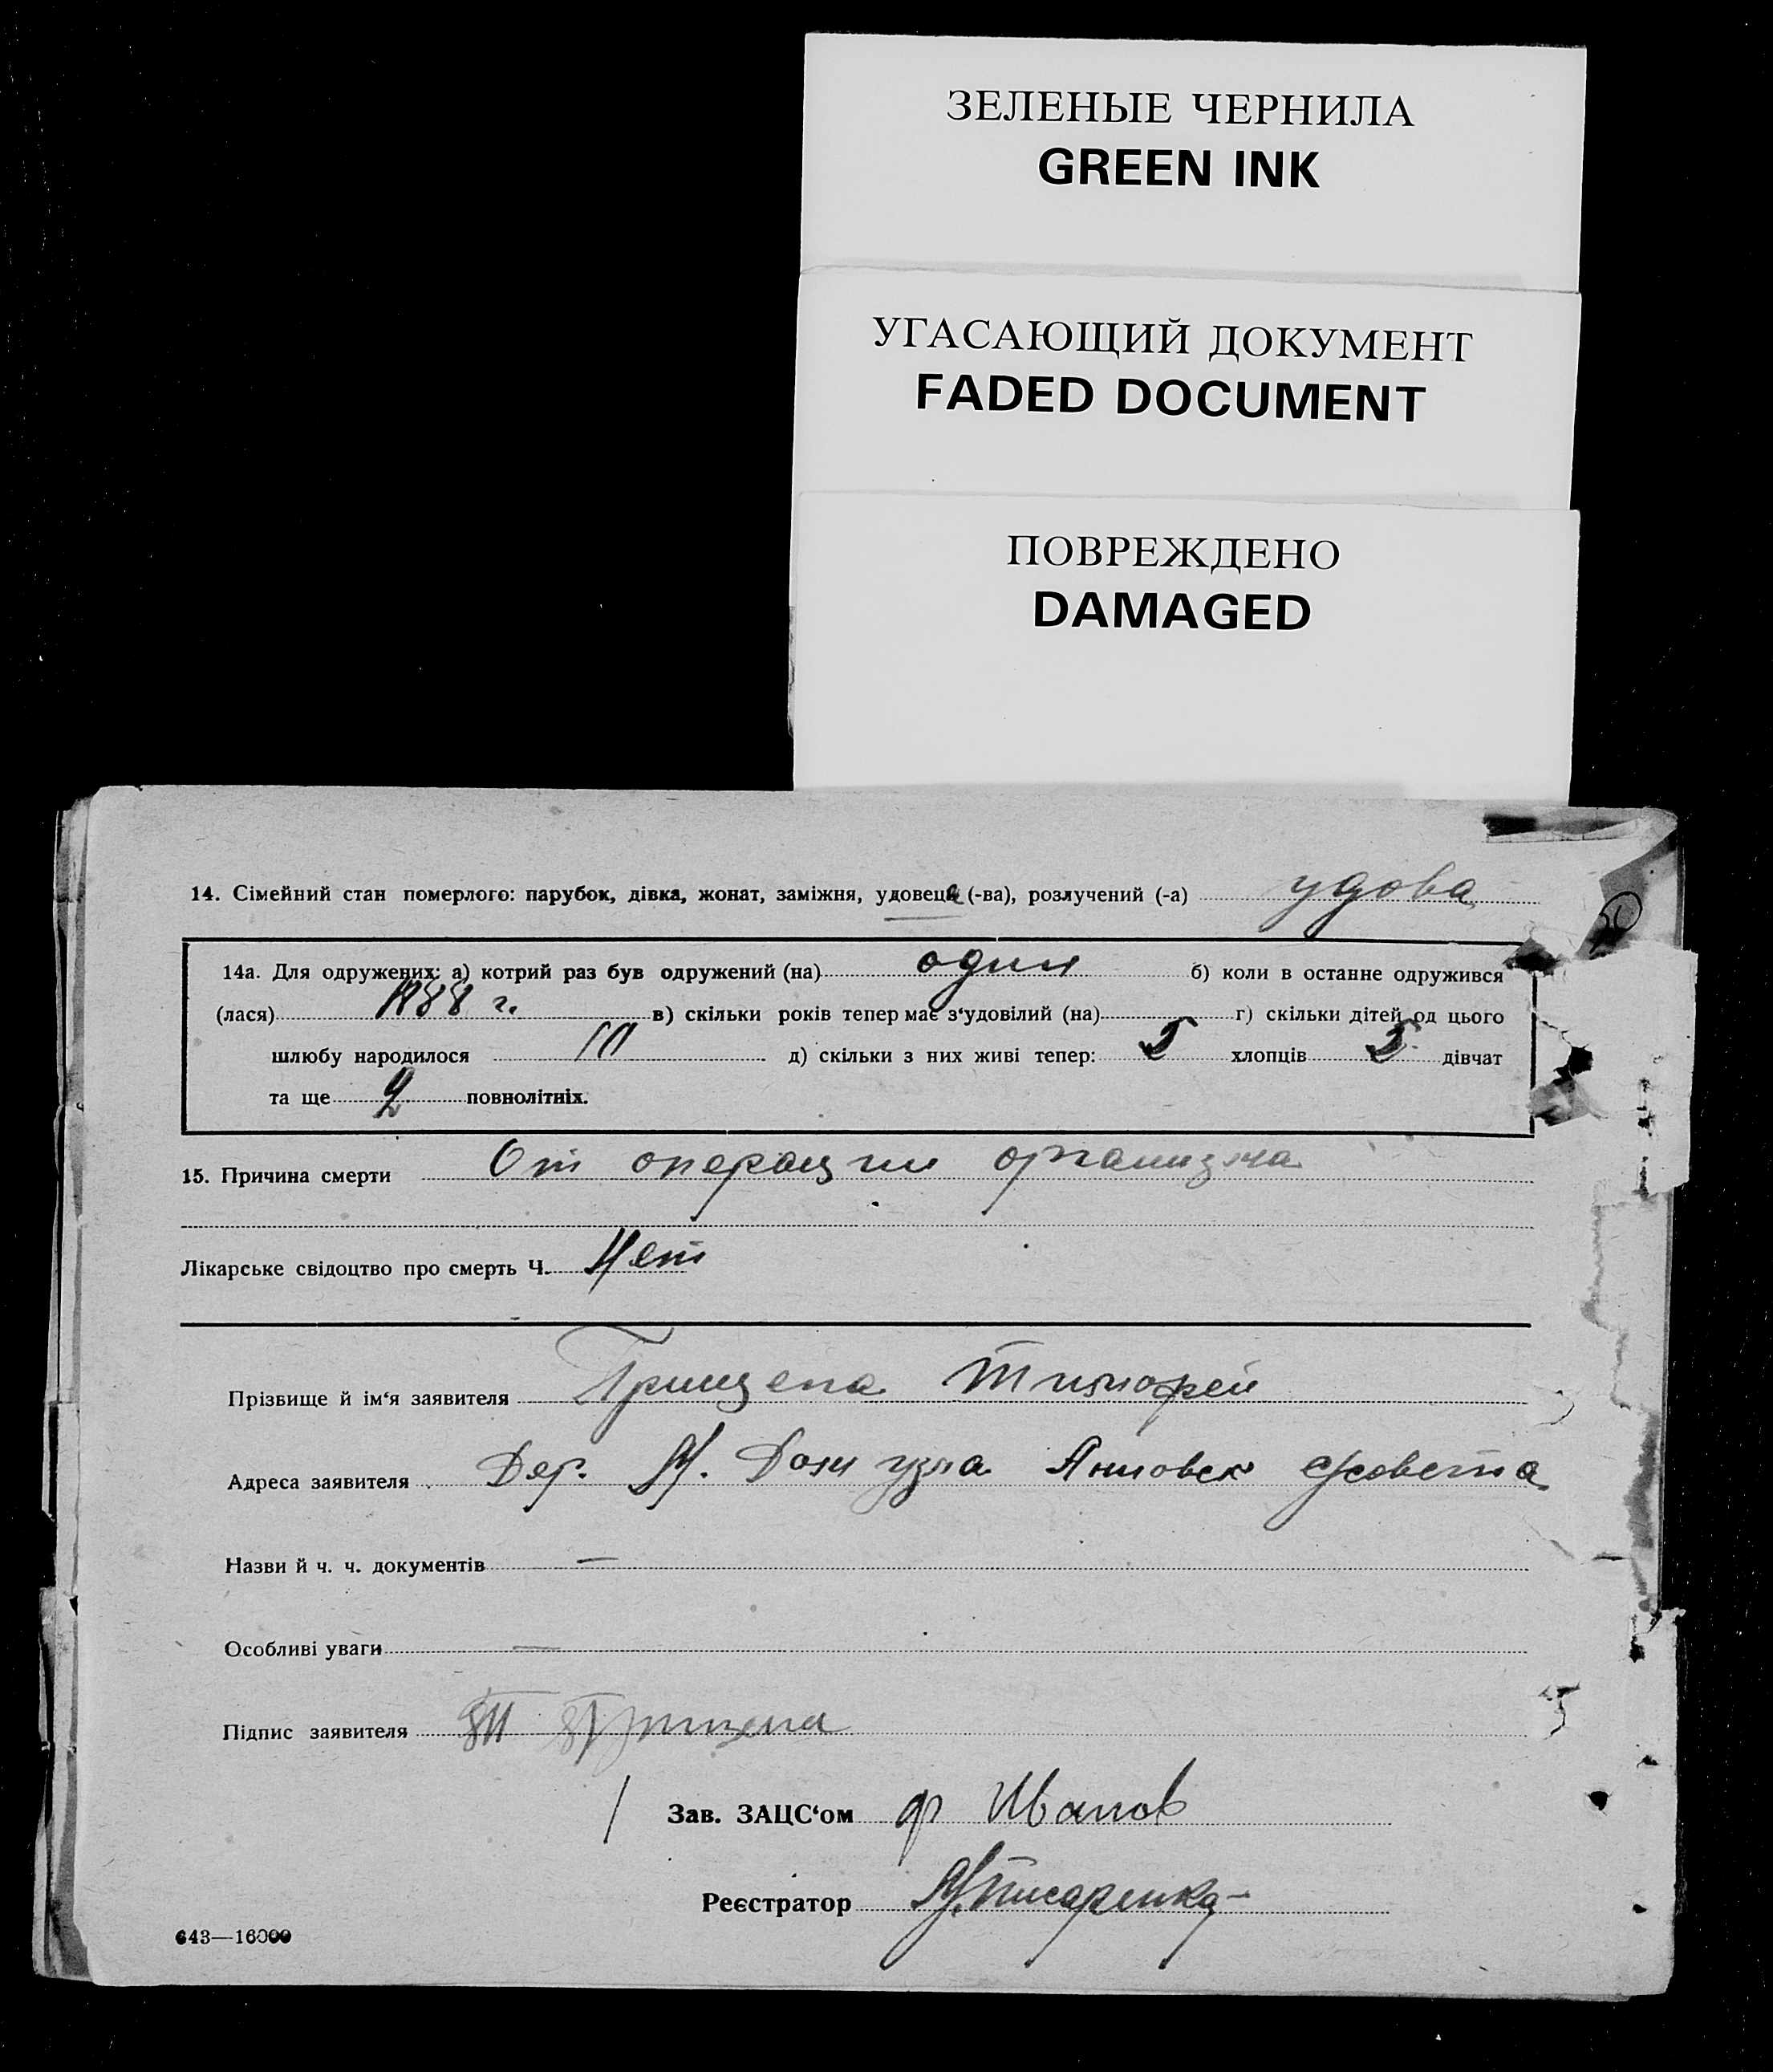 ЗЕЛЕНЫЕ ЧЕРНИЛА
GREEN INK
УГАСАЮЩИЙ ДОКУМЕНТ
FADED DOCUMENT
ПОВРЕЖДЕНО
DAMAGED
14. Сімейний стан померлого: парубок, дівка, жонат, заміжня, удовець (-ва), розлучений (-а) удова
14а. Для одружених: а) котрий раз був одружений (на) один б) коли в останне одружився
(лася) 1888 г. в) скільки років тепер має з‘удовілий (на) г) скільки дітей од цього
шлюбу народилося 10 д) скільки з них живі тепер: 5 хлопців 5 дівчат
та ще 2 повнолітніх.
15. Причина смерти От операции организма
Лікарське свідоцтво про смерть Ч. Нет
Прізвище й ім‘я заявителя Грищепа Тимофей
Адреса заявителя Дер. Янновск с/совета
Назви й ч. ч. документів —
Особливі уваги —
Підпис заявителя Грищепа
Зав. ЗАЦС‘ом Иванов
Реєстратор Писаренко
643—16000